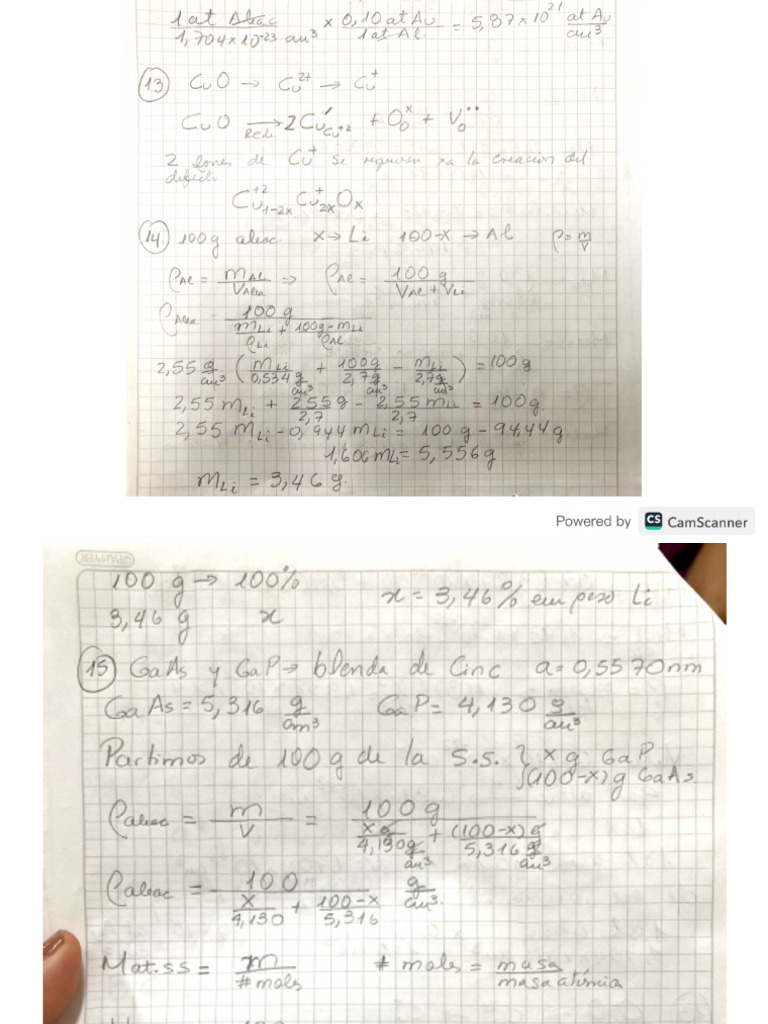 1 at Aleac / 1,704 x 10^-23 cm³ x 0,10 at Au / 1 at Al. = 5,87 x 10^21 at Au / cm³
13 CuO → Cu^2+ → Cu^+
CuO →Red. 2Cu'Cu+2 + O_o^x + V_o^••
2 Iones de Cu^+ se requieren xa la creación del
defecto
Cu^+2_1-2x Cu^+_2x O_x
14. 100g aleac x → Li 100-x → Al ρ = m/V
ρAl = mAl / VAlea ⇒ ρAl = 100 g / VAl + VLi
ρAlea = 100 g / (mLi/ρLi + 100g - mLi/ρAl)
2,55 g/cm³ ( mLi / 0,534 g/cm³ + 100g / 2,7g/cm³ - mLi / 2,7g/cm³ ) = 100g
2,55 mLi + 255g / 2,7 - 2,55 mLi / 2,7 = 100g
2,55 mLi - 0,944 mLi = 100 g - 94,44g
1,606 mLi = 5,556g
mLi = 3,46 g.
Powered by CS CamScanner
100 g → 100% x = 3,46% em peso Li
3,46 g x
15 GaAs y GaP → blenda de Cinc a = 0,5570nm
GaAs = 5,316 g/cm³ GaP = 4,130 g/cm³
Partimos de 100g de la S.S. } x g GaP
(100-x) g GaAs
ρaleac = m / V = 100 g / (x g / 4,130 g/cm³ + (100-x) g / 5,316 g/cm³)
ρaleac = 100 / (x / 4,130 + 100-x / 5,316) g/cm³.
Mat.ss = m / # moles # moles = masa / masa atómica